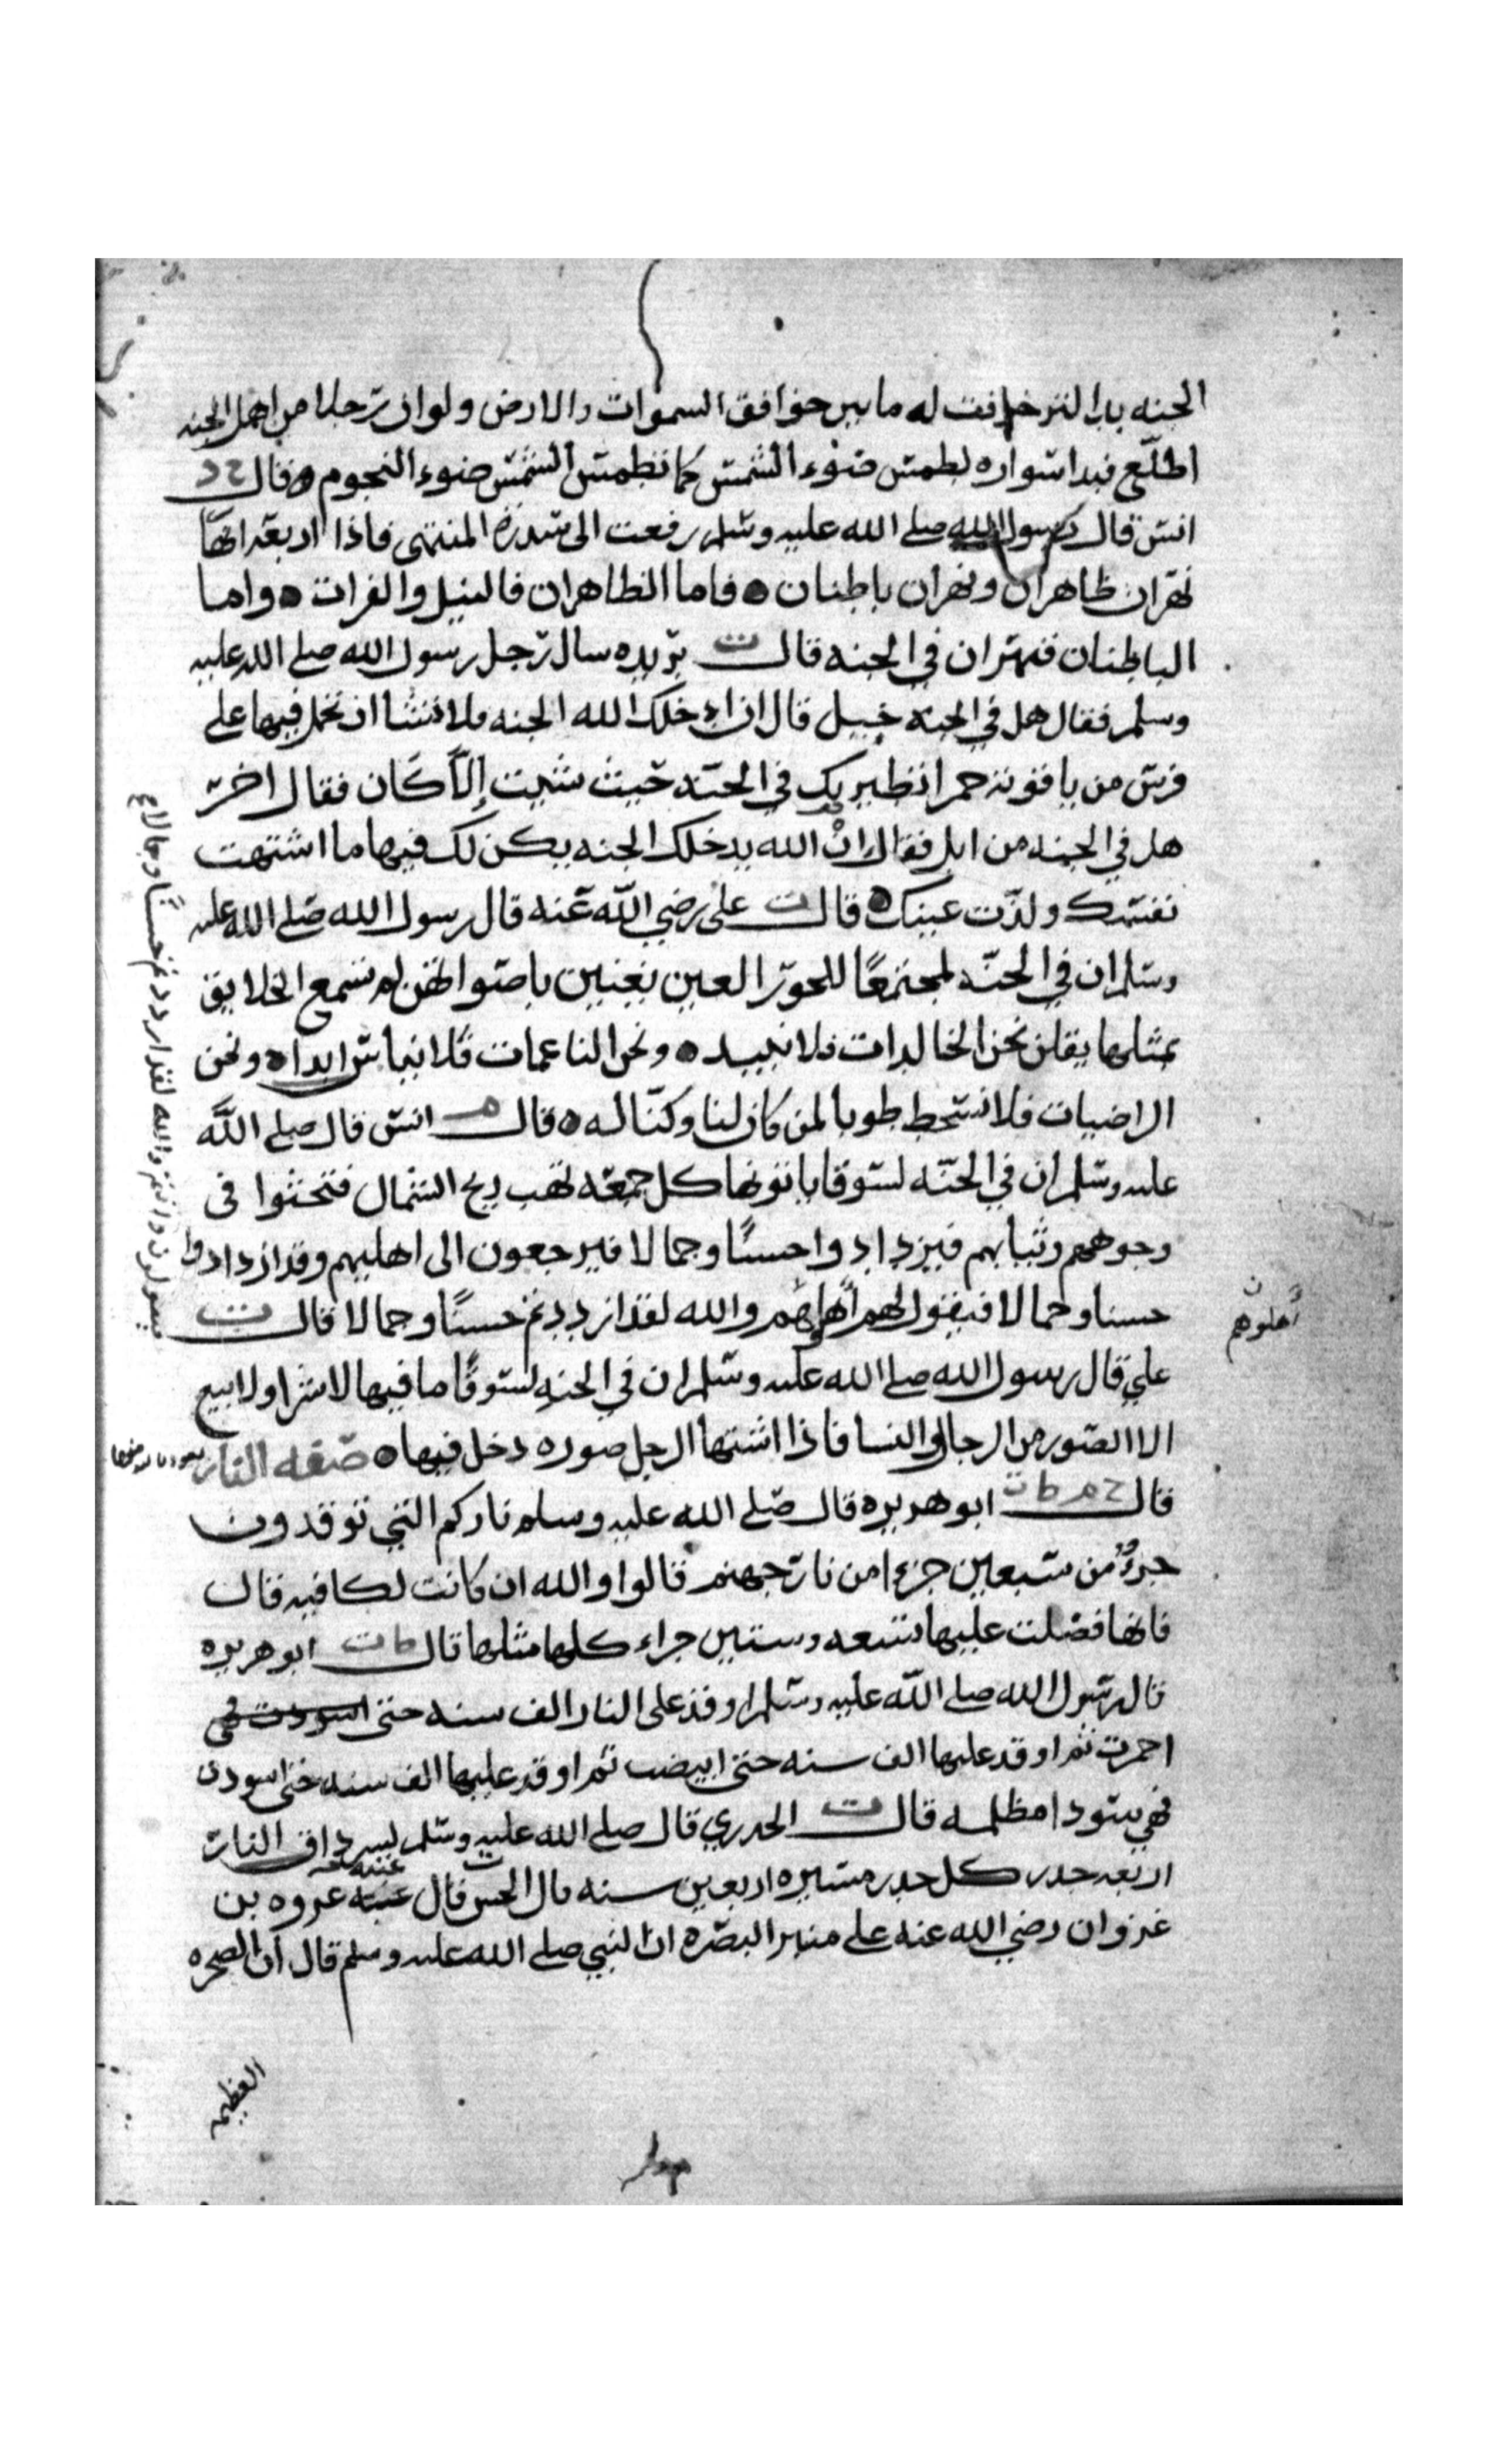 الجنه بدا لتزخرفت له ما بين خوافق السموات والارض ولو ان رجلا من اهل الجنه
اطلع فبدا سواره لطمس ضوء الشمس كما تطمس الشمس ضوء النجوم وقال خ د
انس قال رسول الله صلى الله عليه وسلم رفعت الى سدرة المنتهى فاذا اربعة انهار
نهران ظاهران ونهران باطنان فاما الظاهران فالنيل والفرات واما
الباطنان فنهران في الجنه قال ت بريده سال رجل رسول الله صلى الله عليه
وسلم فقال هل في الجنه خيل قال ان ادخلك الله الجنه فلا تشا ان تحمل فيها على
فرس من ياقوته حمرا تطير بك في الجنه حيث شيت إلا كان فقال اخر
هل في الجنه من ابل فقال ان الله يدخلك الجنه يكن لك فيها ما اشتهت
نفسك ولذت عينك قال ت على رضي الله عنه قال رسول الله صلى الله عليه
وسلم ان في الجنه لمجتمعا للحور العين يغنين باصوات لم تسمع الخلايق
بمثلها يقلن نحن الخالدات فلا نبيد ونحن الناعمات فلا نباس ابدا ونحن
الراضيات فلا نسخط طوبا لمن كان لنا وكنا له قال م انس قال صلى الله
عليه وسلم ان في الجنه لسوقا ياتونها كل جمعه تهب ريح الشمال فتحثوا فى
وجوههم وثيابهم فيزدادوا حسنا وجمالا فيرجعون الى اهليهم وقد ازدادوا
حسنا وجمالا فيقول لهم اهلهم والله لقد ازددتم حسنا وجمالا قال ت
أهلوهم
فيقولون وانتم والله لقد ازددتم حسنا وجمالا
علي قال رسول الله صلى الله عليه وسلم ان في الجنه لسوقا ما فيها لا شرا ولا بيع
الا الصور من الرجال والنسا فاذا اشتها الرجل صوره دخل فيها صفه النار نعوذ بالله منها
قال خ م ط ت ابو هريره قال صلى الله عليه وسلم ناركم التي توقدون
جزؤ من سبعين جزءا من نار جهنم قالوا والله ان كانت لكافيه قال
فانها فضلت عليها بتسعه وستين جزاء كلها مثلها قال ط ت ابو هريره
قال رسول الله صلى الله عليه وسلم اوقد على النار الف سنه حتى اسودت فهي
احمرت ثم اوقد عليها الف سنه حتى ابيضت ثم اوقد عليها الف سنه حتى اسودت
فهي سودا مظلمه قال ت الخدري قال صلى الله عليه وسلم لسرداق النار
اربعه جدر كل جدر مسيره اربعين سنه قال الحسن قال عتبه عروه بن
غزوان رضي الله عنه على منبر البصره ان النبي صلى الله عليه وسلم قال ان الصخره
العظيمه